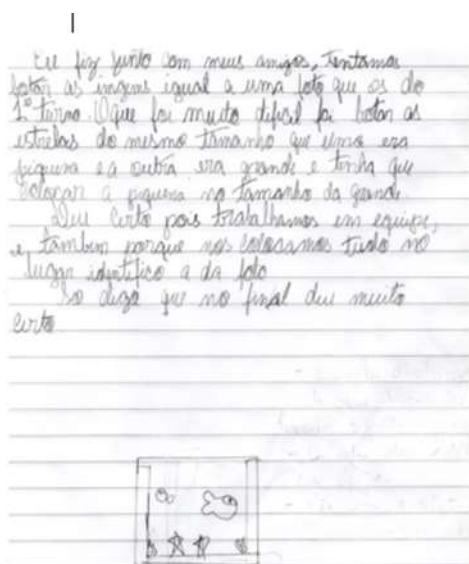 Eu fiz junto com meus amigos, tentamos
botar as imgens igual a uma foto que os do
1º turno. Oque foi muito dificil foi botar as
estrelas do mesmo tamanho que uma era
piquena e a outra era grande e tinha que
colocar a piquena no tamanho da grande.
Deu certo pois trabalhamos em equipe,
e tambim porque nos colocamos tudo no
lugar identifico a da foto
So digo que no final deu muito
certo